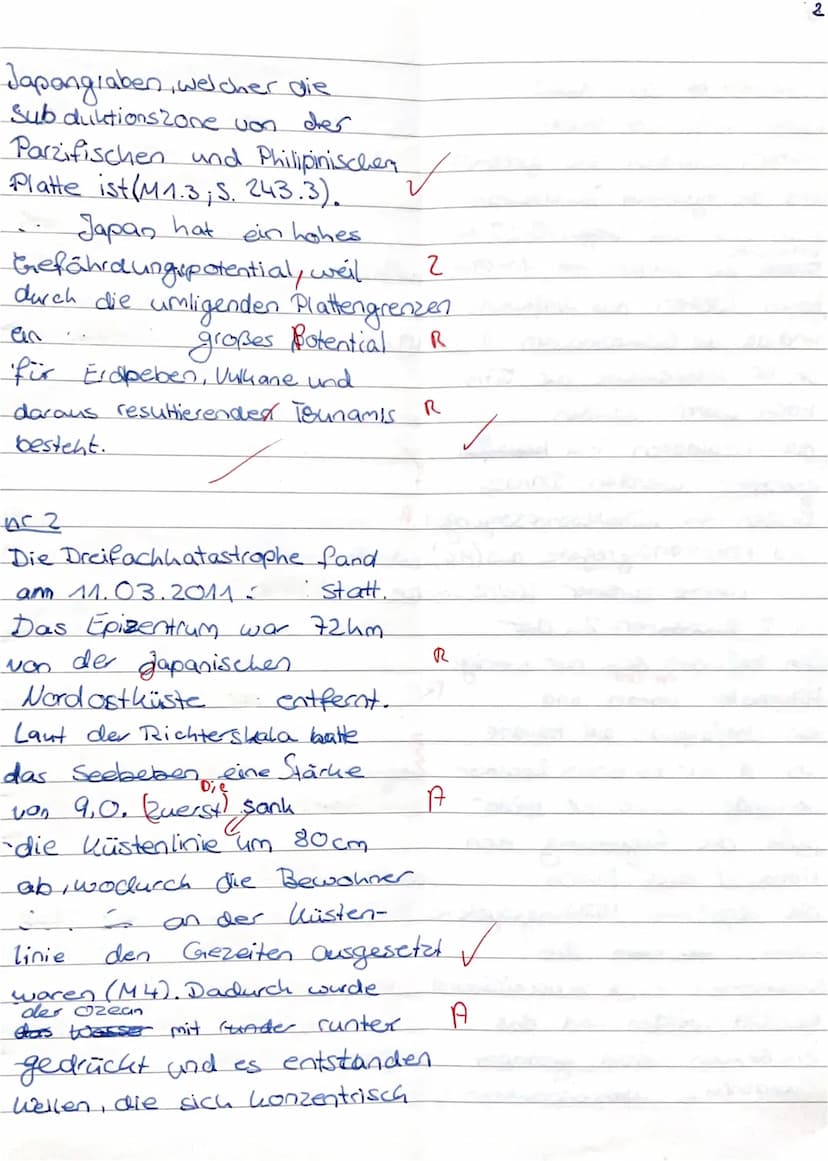 2
Japangraben, welcher die
Subduktionszone von der
Parzifischen und Philipinischen
Platte ist (M1.3; S. 243.3).
Japan hat ein hohes
Gefährdungspotential, weil Z
durch die umligenden Plattengrenzen
ein großes Potential R
für Erdbeben, Vulkane und
daraus resultierenden Tsunamis R
besteht.
nr 2
Die Dreifachkatastrophe fand
am 11.03.2011 statt.
Das Epizentrum war 72km
von der japanischen R
Nordostküste entfernt.
Laut der Richterskala hatte
das Seebeben eine Stärke
Die
von 9,0. (Zuerst) sank A
die Küstenlinie um 80cm
ab, wodurch die Bewohner
an der Küsten-
linie den Gezeiten ausgesetzt
waren (M4). Dadurch wurde
der Ozean
das Wasser mit runter A
gedrückt und es entstanden
Wellen, die sich konzentrisch